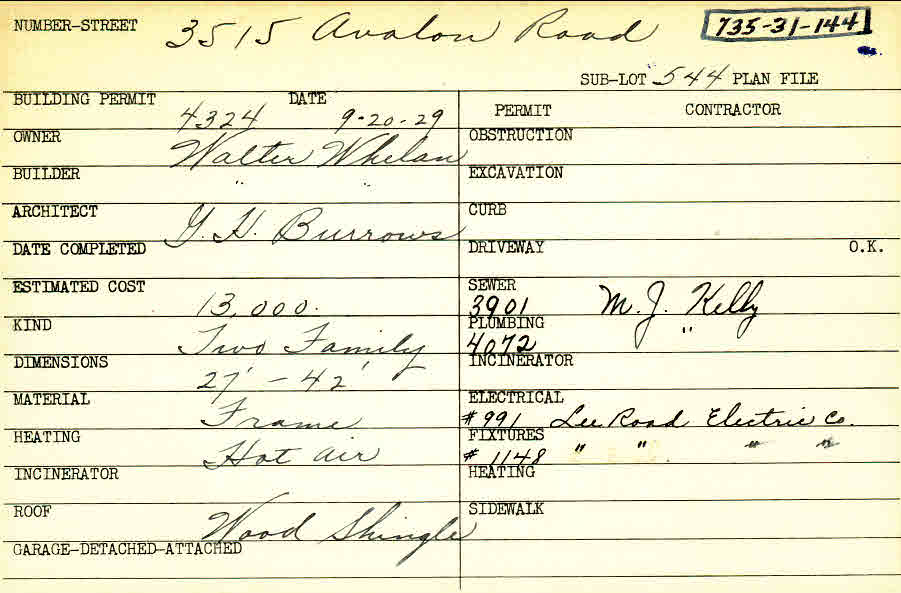 NUMBER-STREET 3515 Avalon Road 735-31-144
SUB-LOT 544 PLAN FILE
BUILDING PERMIT 4324 DATE 9-20-29
OWNER Walter Whelan
BUILDER " "
ARCHITECT G. H. Burrows
DATE COMPLETED
ESTIMATED COST 13,000.
KIND Two Family
DIMENSIONS 27' - 42'
MATERIAL Frame
HEATING Hot Air
INCINERATOR
ROOF Wood Shingle
GARAGE-DETACHED-ATTACHED
PERMIT CONTRACTOR
OBSTRUCTION
EXCAVATION
CURB
DRIVEWAY O.K.
SEWER
3901 M. J. Kelly
PLUMBING "
4072
INCINERATOR
ELECTRICAL
#991 Lee Road Electric Co.
FIXTURES
# 1148 " " " "
HEATING
SIDEWALK